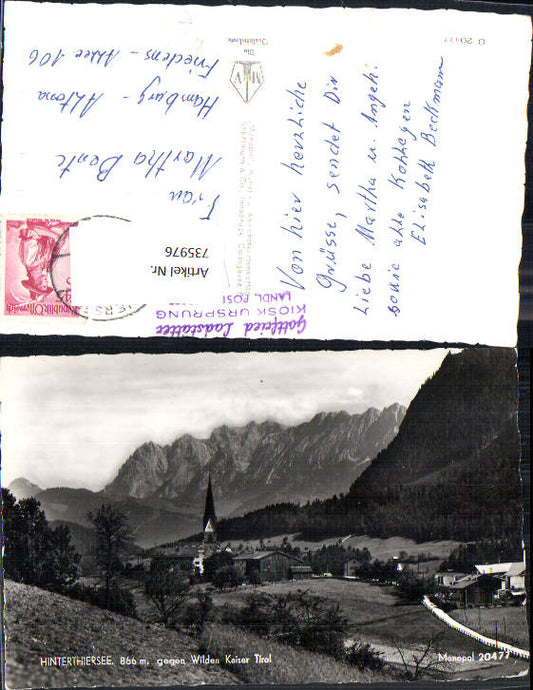 Von hier herzliche
Grüsse, sendet Dir
Liebe Martha u. Angeh.
sowie alle Kollegen
Elisabeth Beckmann
Frau
Martha Bente
Hamburg - Altona
Friedens - Allee 106
Die
G 20477
Artikel Nr.
735976
Republik Österreich
Gottfried Ladstätter
KIOSK URSPRUNG
LANDL POST
HINTERTHIERSEE, 866 m, gegen Wilden Kaiser Tirol
Monopol 20477